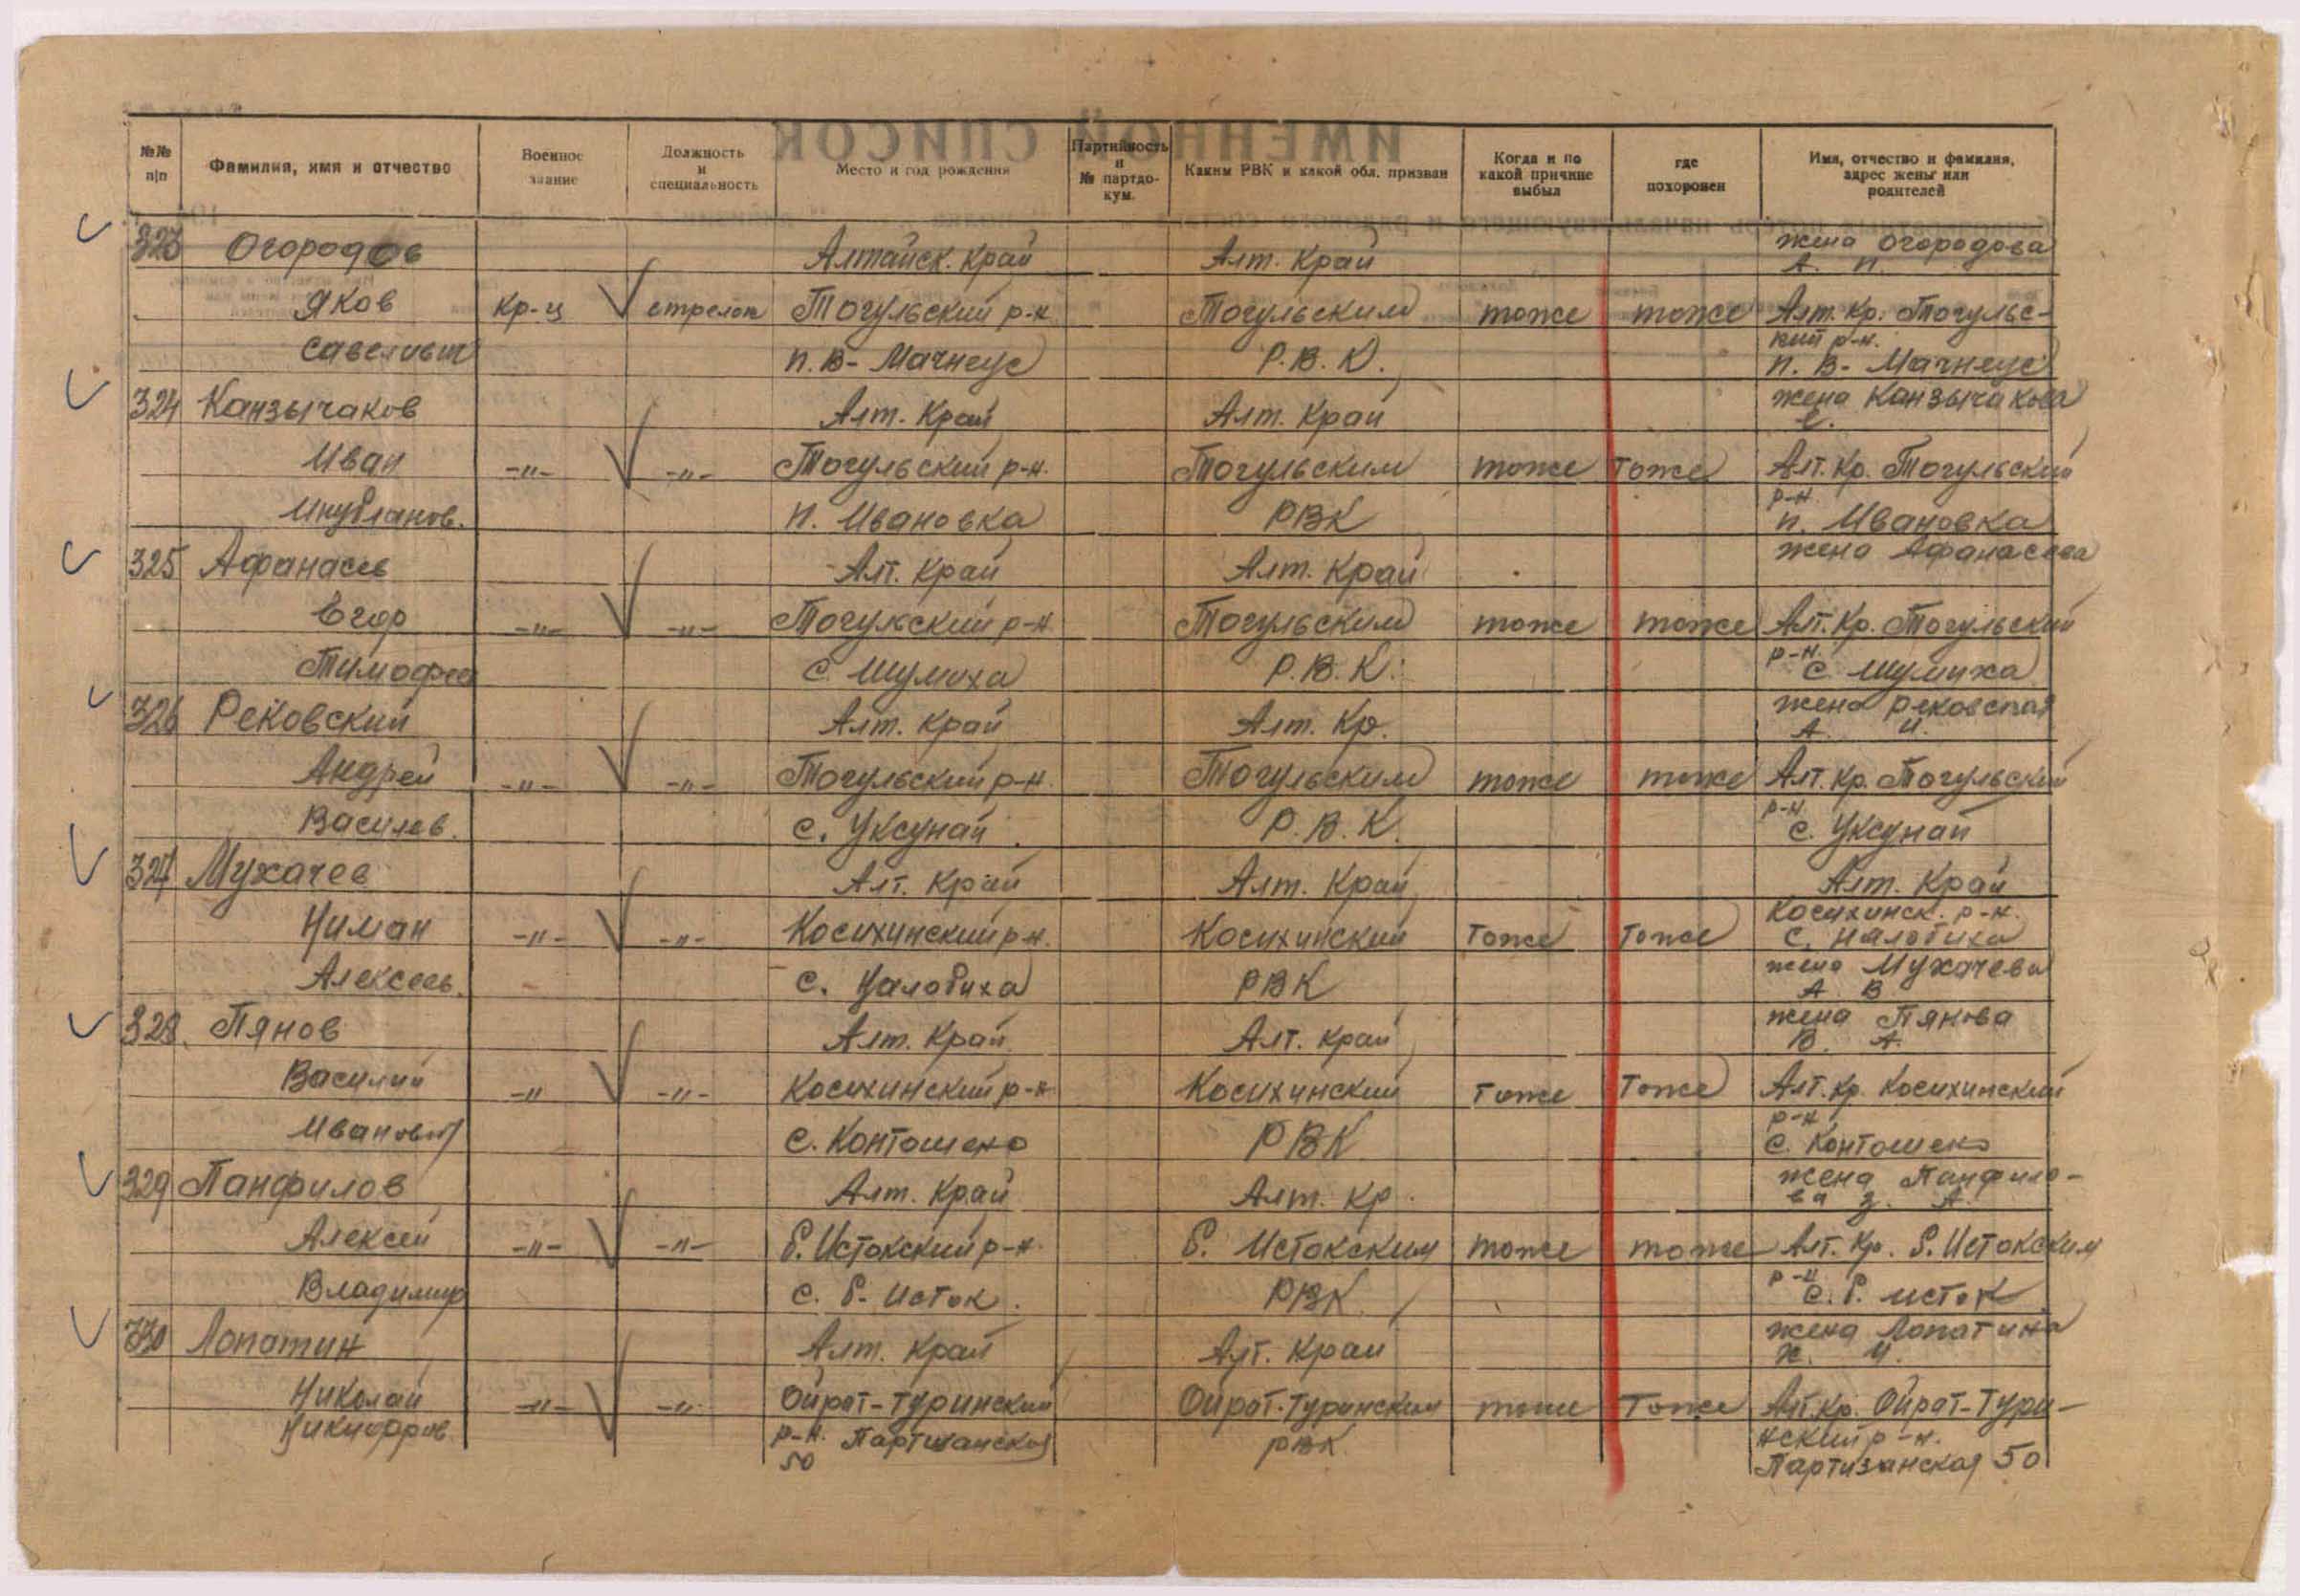 ИМЕННОЙ СПИСОК
№№ п|п
Фамилия, имя и отчество
Военное звание
Должность и специальность
Место и год рождения
Партийность и № партдокум.
Каким РВК и какой обл. призван
Когда и по какой причине выбыл
где похоронен
Имя, отчество и фамилия, адрес жены или родителей
323 Огородов Алтайск. Край Алт. Край жена Огородова
А. П.
Яков Кр-ц стрелок Тогульский р-н Тогульским тоже тоже Алт. Кр. Тогульс-
кий р-н.
Савельевич п. В- Мачнеус Р.В.К. п. В- Мачнеус
324 Канзычаков Алт. Край Алт. Край жена Канзычакова
Е.
Иван -"- -"- Тогульский р-н. Тогульским тоже тоже Алт. Кр. Тогульский
р-н.
п. Ивановка РВК п. Ивановка
325 Афанасев Алт. Край Алт. Край жена Афанасева
Егор -"- -"- Тогульский р-н Тогульским тоже тоже Алт. Кр. Тогульский
р-н.
Тимофее с. Шумиха Р.В.К. с. Шумиха
326 Рековский Алт. Край Алт. Кр. жена Рековская
А. И.
Андрей -"- -"- Тогульский р-н. Тогульским тоже тоже Алт. Кр. Тогульский
р-н
Василев. с. Уксунай Р.В.К. с. Уксунай
327 Мухачев Алт. Край Алт. Край Алт. Край
Косихинск. р-н.
Ниман -"- -"- Косихинский р-н. Косихинский тоже тоже с. Налобиха
жена Мухачева
Алексеев. с. Налобиха РВК А. В
328. Пянов Алт. Край Алт. Край жена Пянова
В. А.
Василий -" -"- Косихинский р-н Косихинский тоже тоже Алт. Кр. Косихинский
р-н,
Иванович с. Контошено РВК с. Контошено
329 Панфилов Алт. Край Алт. Кр. жена Панфило-
ва З. А.
Алексей -"- -"- Б. Истокский р-н. Б. Истокским тоже тоже Алт. Кр. Б. Истокским
р-н
Владимир с. Б. Исток. РВК с. Б. исток
330 Лопатин Алт. Край Алт. Край жена Лопатина
И.
Николай -"- -"- Ойрот-Туринский Ойрот-Туринским тоже тоже Алт. Кр. Ойрот-Тури-
Никифоров. р-н. Партизанская РВК нский р-н.
50 Партизанская 50